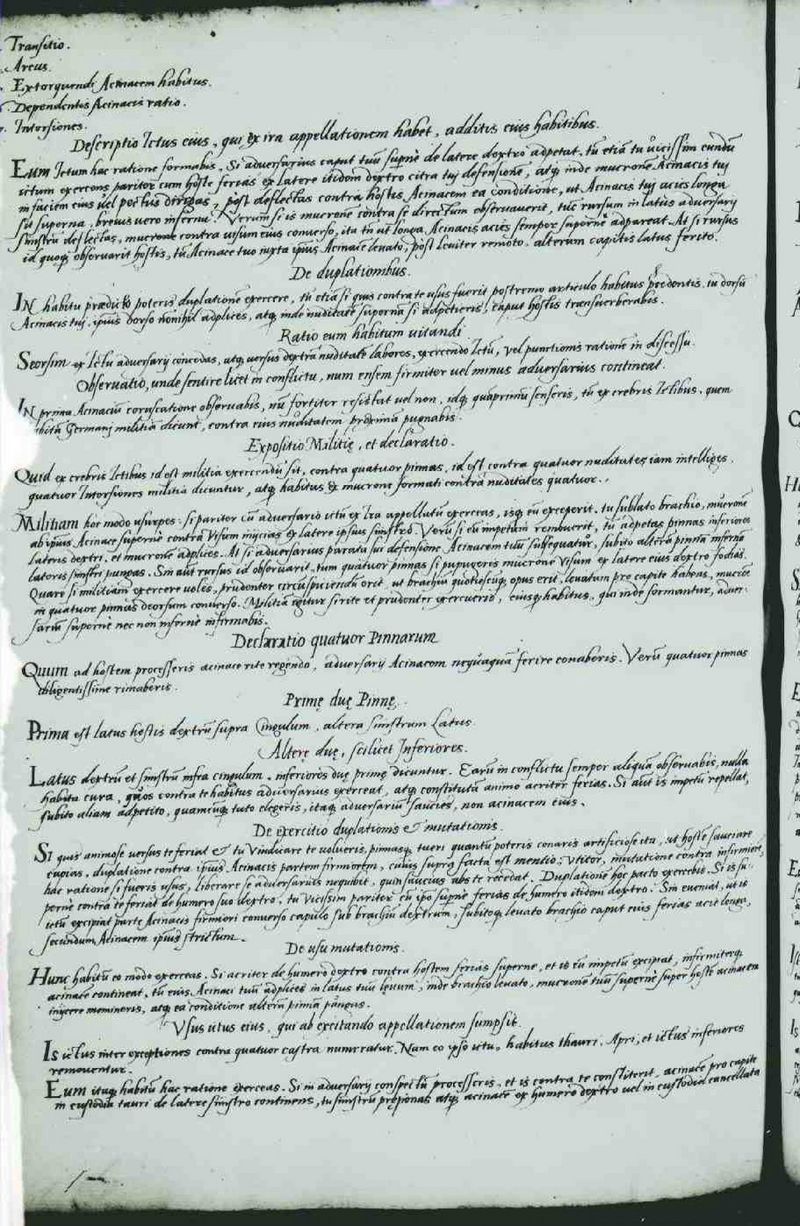 Transitio.
Arcus.
Extorquendi Acinacem habitus.
Dependentis Acinacis ratio.
Intorsiones.
Descriptio Ictus eius, qui ex ira appellationem habet, additis eius habitibus.
Eum Ictum hac ratione formabis. Si adversarius caput tuũ supernè de latere dextro adpetat, tu etiã tu vicissim eundũ
ictum exercens pariter cum hoste ferias ex latere itidem dextro citra tuj defensionẽ, atq inde mucronẽ Acinacis tuj
in faciem eius vel pectus dirigas, post deflectas contra hostis Acinacem ea conditione, ut Acinacis tuj acies longa
sit superna, brevis vero inferne. Verum si is mucronẽ contra se directum observauerit, tũc rursum in latus adversarij
sinistrũ deflectas, mucronẽ contra visum eius converso, ita tñ ut longa Acinacis acies semper supernè adpareat. At si rursus
id quoq observarit hostis, tũ Acinace tuo iuxta ipsius Acinacẽ levato, post leviter remoto, alterum capitis latus ferito.
De duplationibus.
IN habitu prædicto poteris duplationẽ exercere, tũ etiã si quis contra te usus fuerit postremo articulo habitus pẽdentis, tu dorsũ
Acinacis tuj, ipsius dorso nonnihil adplices, atq inde nuditatẽ supernã si adpetieris, caput hostis transverberabis.
Ratio eum habitum vitandi
Seorsim ex Ictu adversarij concedas, atq versus dextrã nuditatẽ labores, exercẽdo Ictũ, vel punctionis rationẽ in discessu.
Observatio, unde sentire licet in conflictu, num ensem firmiter vel minus adversarius contineat.
IN prima Acinacũ coruscatione observabis, nũ fortiter resistat vel non, idq quãprimũ senseris, tũ ex crebris Ictibus, quem
habitũ Germanj militiã dicunt, contra eius nuditatem proximã pugnabis.
Expositio Militię, et declaratio.
Quid ex crebris Ictibus id est militia exercendũ sit, contra quatuor pinnas, id est contra quatuor nuditates iam intelliges.
quatuor Intorsiones militia dicuntur, atq habitus ex mucrone formati contra nuditates quatuor.
Militiam hoc modo usurpes: si pariter cũ adversario ictũ ex Ira appellatũ exerceas, isq eũ exceperit, tu sublato brachio, mucronẽ
ab ipsius Acinace supernè contra Visum inijcias ex latere ipsius sinistro. Verũ si eũ impetum removerit, tu adpetas pinnas inferiores
lateris dextri, et mucronẽ adplices. At si adversarius paratus defensione Acinacem tuũ subsequatur, subito alterã pinnã infernè
lateris sinistri pungas. Sin aut rursus id observarit, tum quatuor pinnas si pupugeris mucrone Visum ex latere eius dextro fodias.
Quare si militiam exercere voles, prudenter circũspiciendũ erit, ut brachiũ quotiescũq opus erit, levatum pro capite habeas, mucrone
in quatuor pinnas deorsum converso. Militiã igitur si rite et prudenter exercueris, eiusq habitus, qui inde formantur, adver-
sariũ supernè nec non infernè infirmabis.
Declaratio quatuor Pinnarum
Quum ad hostem processeris acinace rite regendo, adversarij Acinacem nequaquã ferire conaberis. Verũ quatuor pinnas
diligentissime rimaberis.
Primę duę Pinnę.
Prima est latus hostis dextrũ supra Cingulum, altera sinistrum Latus.
Alterę duę, scilicet Inferiores.
Latus dextrũ et sinistrũ infra cingulum, inferiores duę primę dicuntur. Earũ in conflictu semper aliquã observabis, nulla
habita cura, quos contra te habitus adversarius exerceat, atq constitutã animo acriter ferias. Si aut is impetũ repellat,
subito aliam adpetito, quamcũq tuto elegeris, itaq adversariũ saucies, non acinacem eius.
De exercitio duplationis & mutationis.
Si quis animose versus te feriat & tu Vindicare te volueris, pinnasq tueri quantũ poteris conaris artificiose ita, ut hostẽ sauciare
cupias, duplatione contra ipsius Acinacis partem firmiorem, cuius supra facta est mentio, utitor, mutatione contra infirmiorẽ,
hac ratione si fueris usus, liberare se adversarius nequibit, quin saucius abs te recedat. Duplationẽ hoc pacto exercebis. Si is su-
pernè contra te feriat de humero suo dextro, tu Vicissim pariter cũ ipso supernè ferias de humero itidem dextro. Sin eveniat, ut is
ictũ excipiat parte Acinacis firmiori converso capulo sub brachiũ dextrum, subitoq levato brachio caput eius ferias acie longa,
secundum Acinacem ipsius strictum.
De usu mutationis.
Hunc habitũ eo modo exerceas. Si acriter de humero dextro contra hostem ferias supernè, et is eũ impetũ excipiat, infirmiterq
acinacẽ contineat, tũ eius Acinaci tuũ adplices in latus tuũ lęvum, inde brachio levato, mucronẽ tuũ supernè super hostis acinacem
inijcere memineris, atq ea conditione alterã pinnã pũngas.
Usus ictus eius, qui ab excitando appellationem sumpsit.
Is ictus inter exceptiones contra quatuor castra numeratur. Nam eo ipso ictu, habitus thauri, Apri, et ictus inferiores
removentur.
Eum itaq habitũ hac ratione exerceas. Si in adversarij conspectũ processeris, et is contra te constiterit, acinacẽ pro capite
in custodia tauri de latere sinistro continens, tu sinistrũ pręponas atq acinacẽ ex humero dextro vel in custodia cancellata